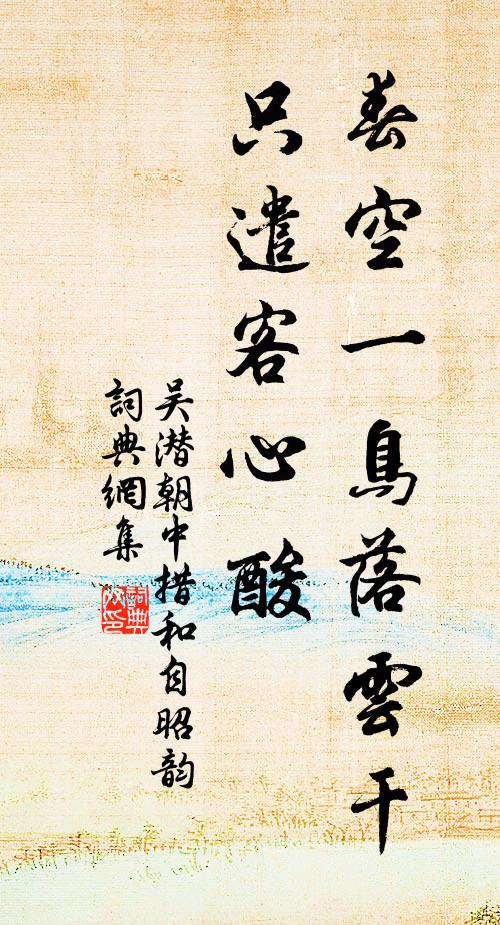 春空一鳥落雲干
只遣客心酸
吴潜朝中措和自昭韵
詞典網集